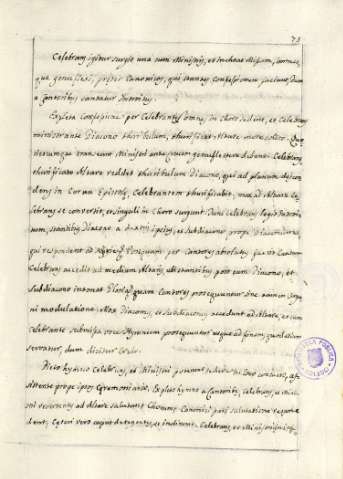 73
Celebrans igitur surgit una cum Ministris, et inchoat Missam, omnes,
que genuflexi, præter Canonicos, qui stantes Confessionem faciunt, dum
a Cantoribus cantatur Introitus.
Expleta Confessione per Celebrantem omnes in Choro sedent, et Celebrans
ministrante Diacono thuribulum, thurificat Altare more solito.
iterumque transeunt Ministri ante Crucem genuflectere debent. Celebrans
thurificato Altare reddit thuribulum Diacono, qui ad planum
dens in Cornu Epistolæ, Celebrantem thurificabit, mox ad Altare Ce-
lebrans se convertit, et singuli in Choro surgunt. Tunc Celebrans legit Introi-
tum, stantibus Diacono a dextris ipsius, et subdiacono prope Diaconum,
qui respondent ad Kyrie. Postquam per Cantores absolutus, fuerit
Celebrans accedit ad medium Altaris, et stantibus post eum Diacono, et
subdiacono intonat Gloria, quam Cantores prosequuntur sine
ni modulatione. Mox Diaconus, et subdiaconus accedunt ad Altare, et cum
Celebrante submissa voce Hymnum prosequuntur usque ad finem, quod etiam
servatur, dum dicitur Credo.
Dicto hymno Celebrans, et Ministri possunt sedere in loco consueto, as-
sistente prope ipsos Ceremoniario. Expleto hymno a Cantoribus, Celebrans, et Minis-
tri revertentes ad Altare salutant Chorum. Canonici pari salutatione respon-
dent; Cæteri vero caput detegentes, se inclinent. Celebrans, et Ministri